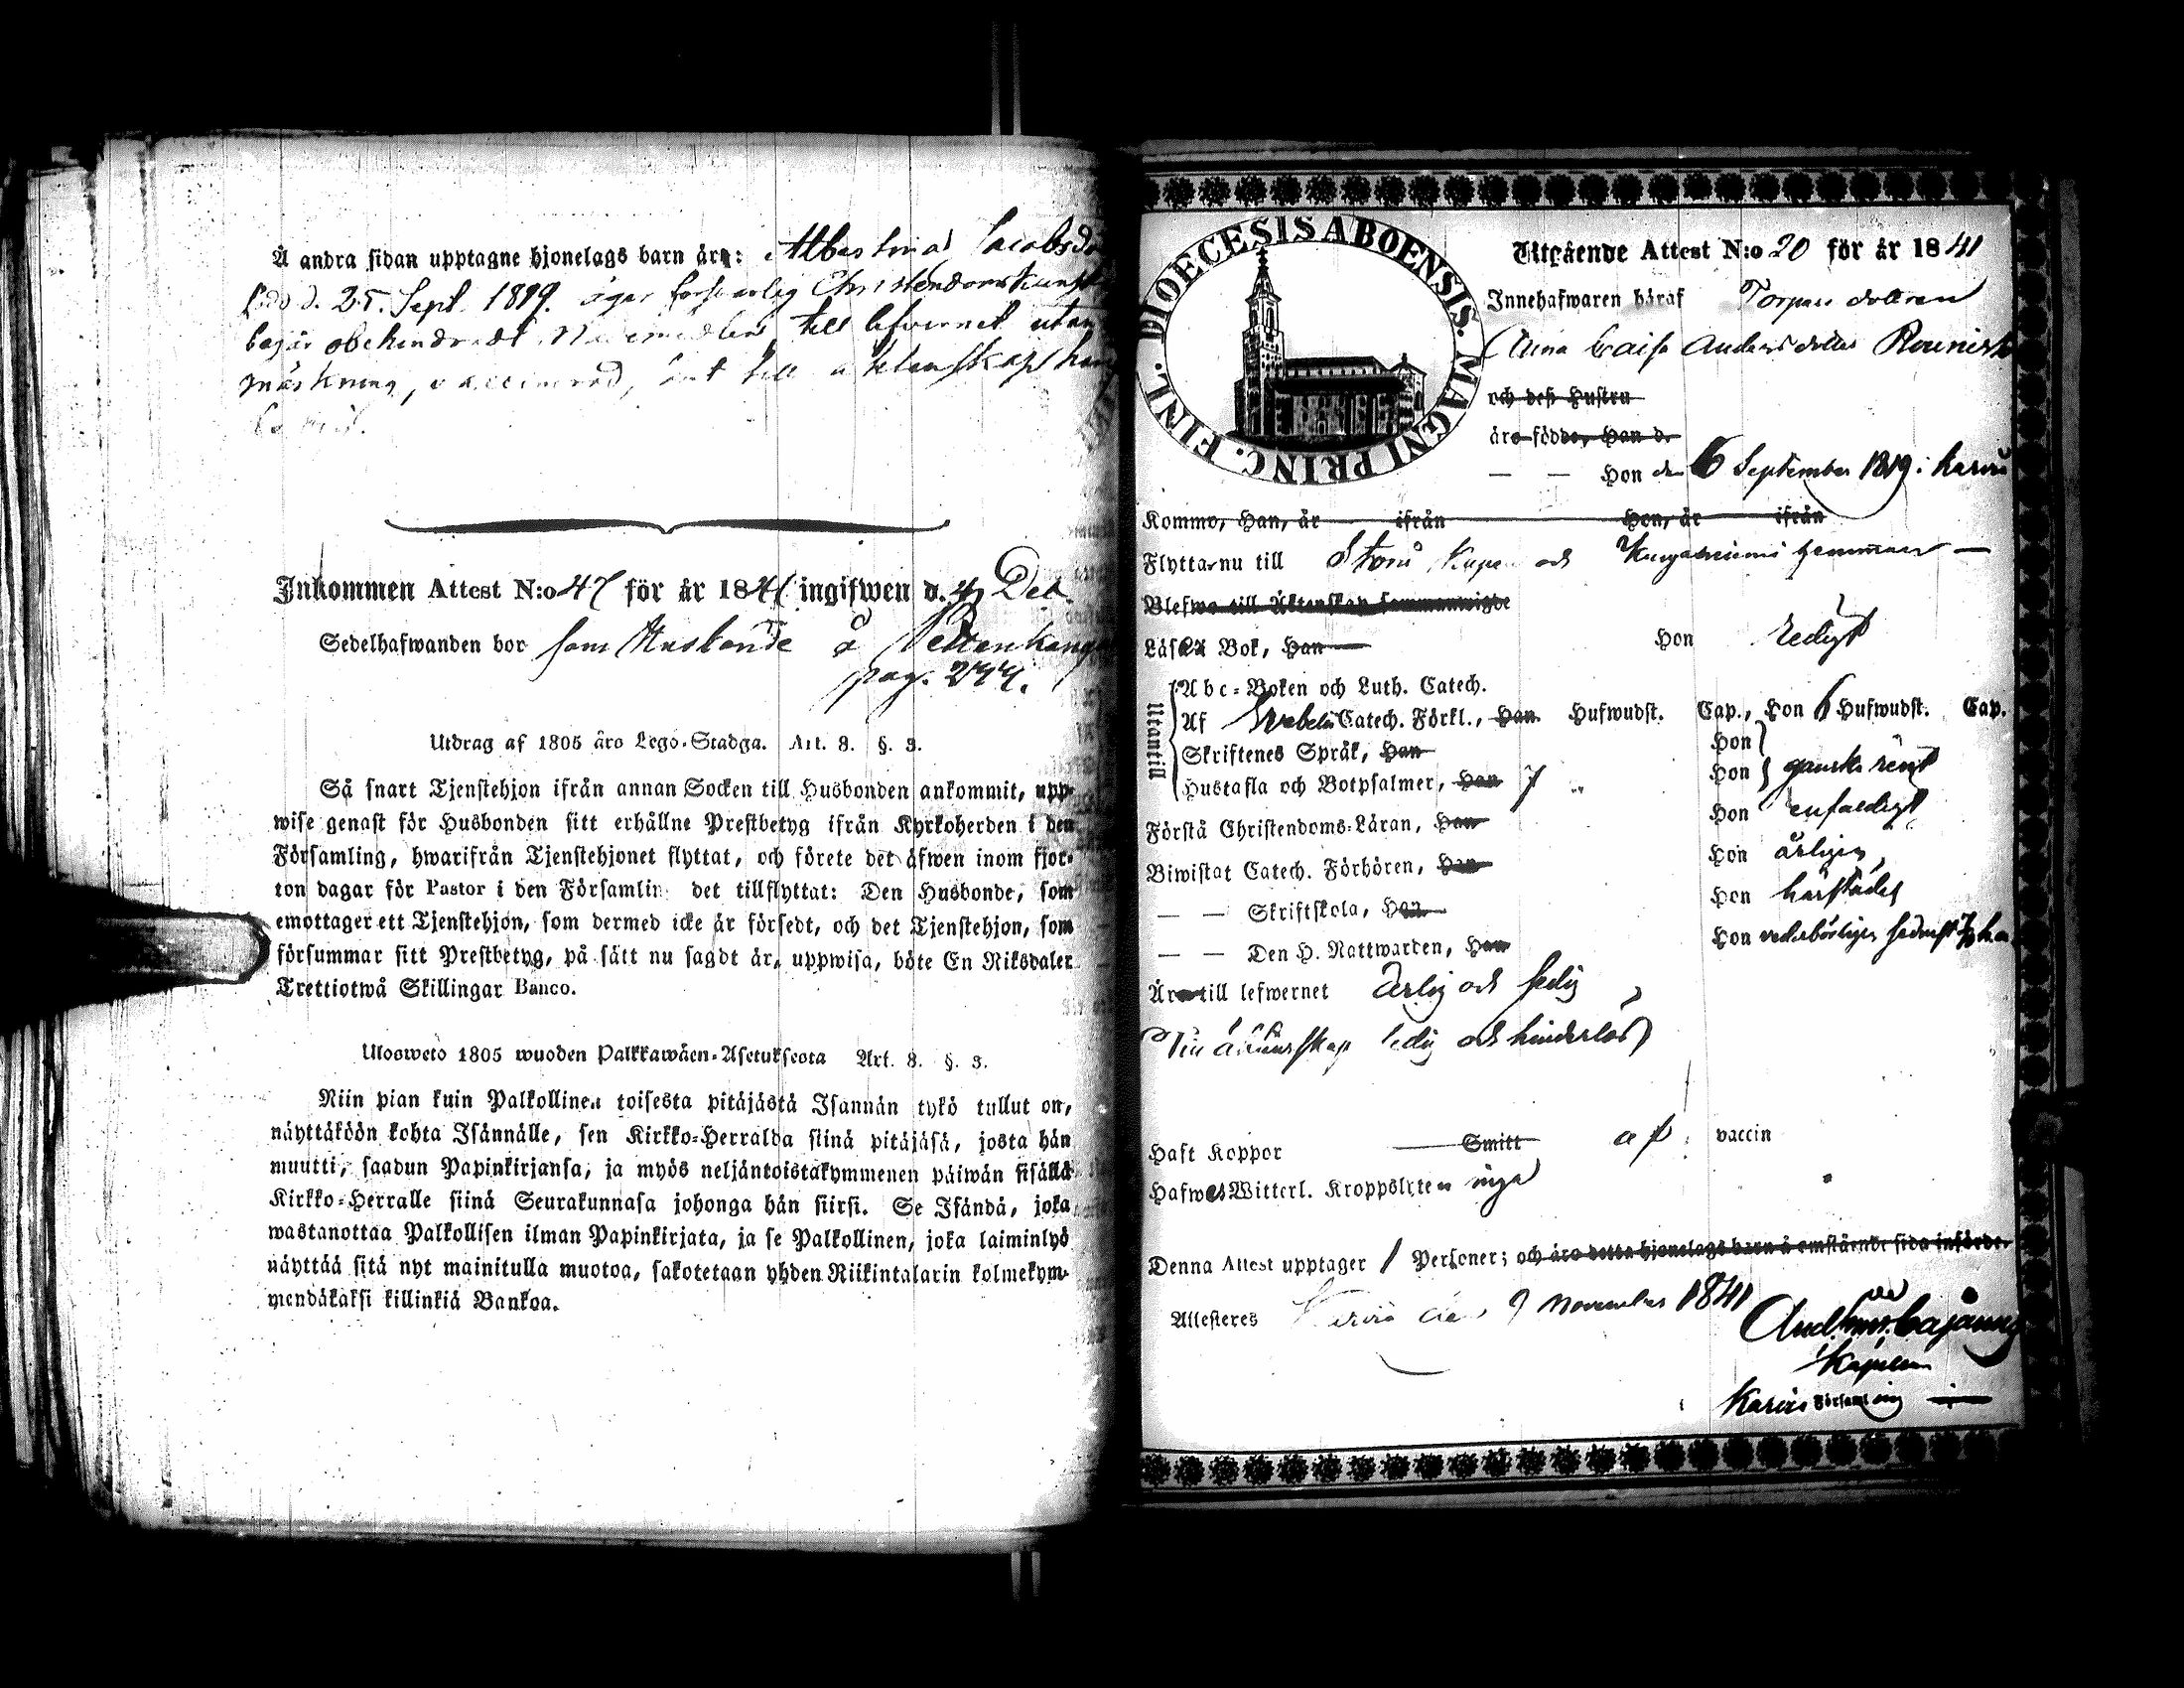 Å andra sidan upptagne hjonelags barn äro: Albertina Jacobsdr
född d. 25. Sept. 1819. äger försvarlig Christendoms kunsk
begår obehindradt Nademedlen till lefvernet utan
märkning, vaccinerad, till äktenskaps
Inkommen Attest N:o 47 för år 1841 ingifwen d. 4 Dec.
Sedelhafwanden bor som Husbonde å
pag. 244.
Utdrag af 1805 åro Lego-Stadga. Art. 8. §. 3.
Så snart Tjenstehjon ifrån annan Socken till Husbonden ankommit, upp-
wise genast för Husbonden sitt erhållne Prestbetyg ifrån Kyrkoherden i den
Församling, hwarifrån Tjenstehjonet flyttat, och förete det äfwen inom fjor-
ton dagar för Pastor i den Församling det tillflyttat: Den Husbonde, som
emottager ett Tjenstehjon, som dermed icke är försedt, och det Tjenstehjon, som
försummar sitt Prestbetyg, på sätt nu sagdt är, uppwisa, böte En Riksdaler
Trettiotwå Skillingar Banco.
Ulosweto 1805 wuoden Palkkawäen-Asetuksesta Art. 8. §. 3.
Niin pian kuin Palkollinen toisesta pitäjästä Isännän tykö tullut on,
näyttäköön kohta Isännälle, sen Kirkko-Herralda siinä pitäjäsä, josta hän
muutti, saadun Papinkirjansa, ja myös neljäntoistakymmenen päiwän sisällä
Kirkko-Herralle siinä Seurakunnasa johonga hän siirsi. Se Isändä, joka
wastanottaa Palkollisen ilman Papinkirjata, ja se Palkollinen, joka laiminlyö
näyttää sitä nyt mainitulla muotoa, sakotetaan yhden Riikintalarin kolmekym-
mendäkaksi killinkiä Bankoa.
DIOECESIS ABOENSIS. MAGNI PRINC. FINL.
Utgående Attest N:o 20 för år 1841
Innehafwaren häraf Torpare dottren
Anna Caisa Andersdotter
och deß Hustru
äro födde, Han d.
— — Hon den 6 September 1819 i Karvis
Kommo, Han, år ifrån Hon, år ifrån
Flytta nu till Storå och hemman —
Blefwo till Äktenskap sammanwigde
Läsa i Bok, Han — Hon redigt
Utantill
Abc-Boken och Luth. Catech.
Af Svebelii Catech. Förkl., Han Hufwudst. Cap., Hon 6 Hufwudst. Cap.
Skriftenes Språk, Han Hon
Hustafla och Botpsalmer, Han Hon ganska rent
Förstå Christendoms-Läran, Han Hon enfaldigt
Biwistat Catech. Förhören, Han Hon årligen
— — Skriftskola, Han Hon härstädes
— — Den H. Nattwarden, Han Hon vederbörligen
Äro till lefwernet ärlig och sedig
Till äktenskap ledig och hinderlös
Haft Koppor Smitt af vaccin
Hafwa Witterl. Kroppslyten inga
Denna Attest upptager 1 Personer; och äro detta hjonelags barn å omstående sida införde.
Attesteres Karvis den 9 November 1841
And. Cajanus
Kapellan
Karvis Församling